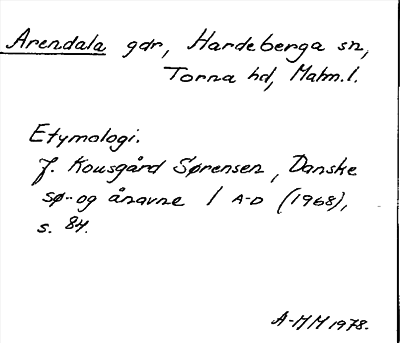 Arendala gdr, Hardeberga sn,
Torna hd, Malm.l.
Etymologi.
J. Kousgård Sørensen, Danske
sø- og ånavne 1 A-D (1968),
s. 84.
A-MM 1978.